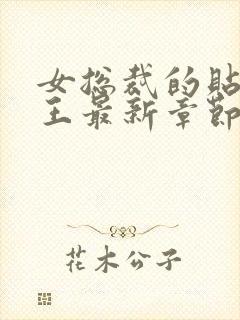 女总裁的贴
王最新章节
花木公子